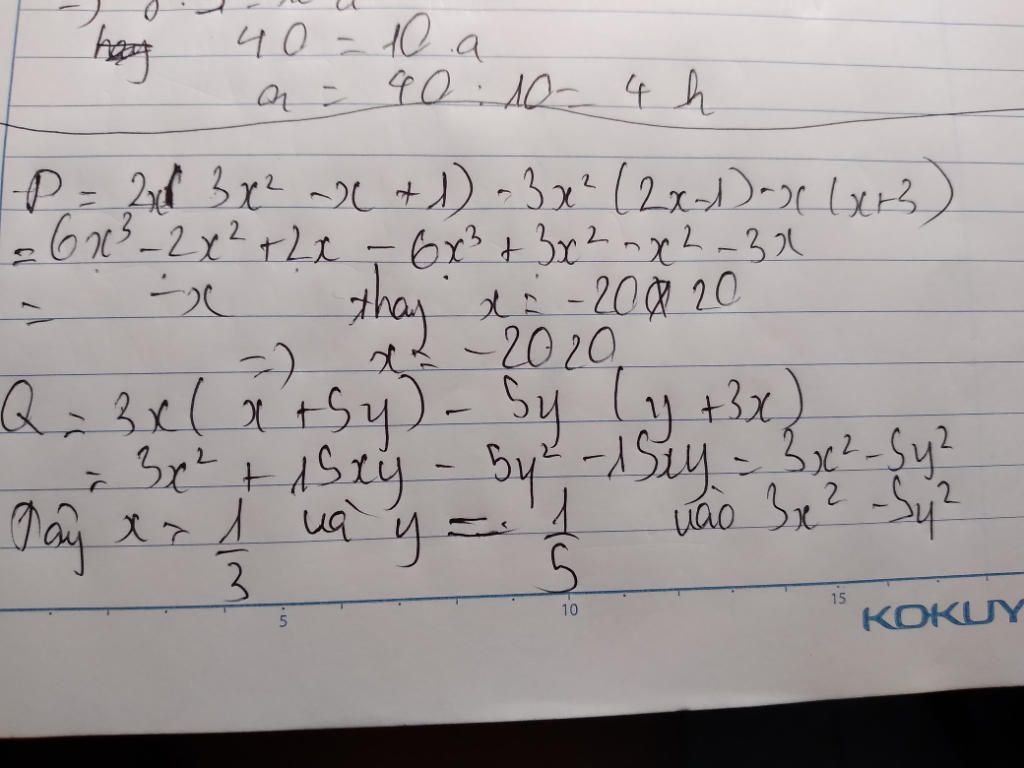 hay 40 = 10.a
a = 40 : 10 = 4 h
P = 2x( 3x² - x + 1) - 3x² (2x-1) - x (x+3)
= 6x³ - 2x² + 2x - 6x³ + 3x² - x² - 3x
= -x thay x = -20 20
=> x = -2020
Q = 3x( x + 5y) - 5y (y + 3x)
= 3x² + 15xy - 5y² - 15xy = 3x² - 5y²
x = 1/3 và y = 1/5 vào 3x² - 5y²
5 10 15
KOKUY